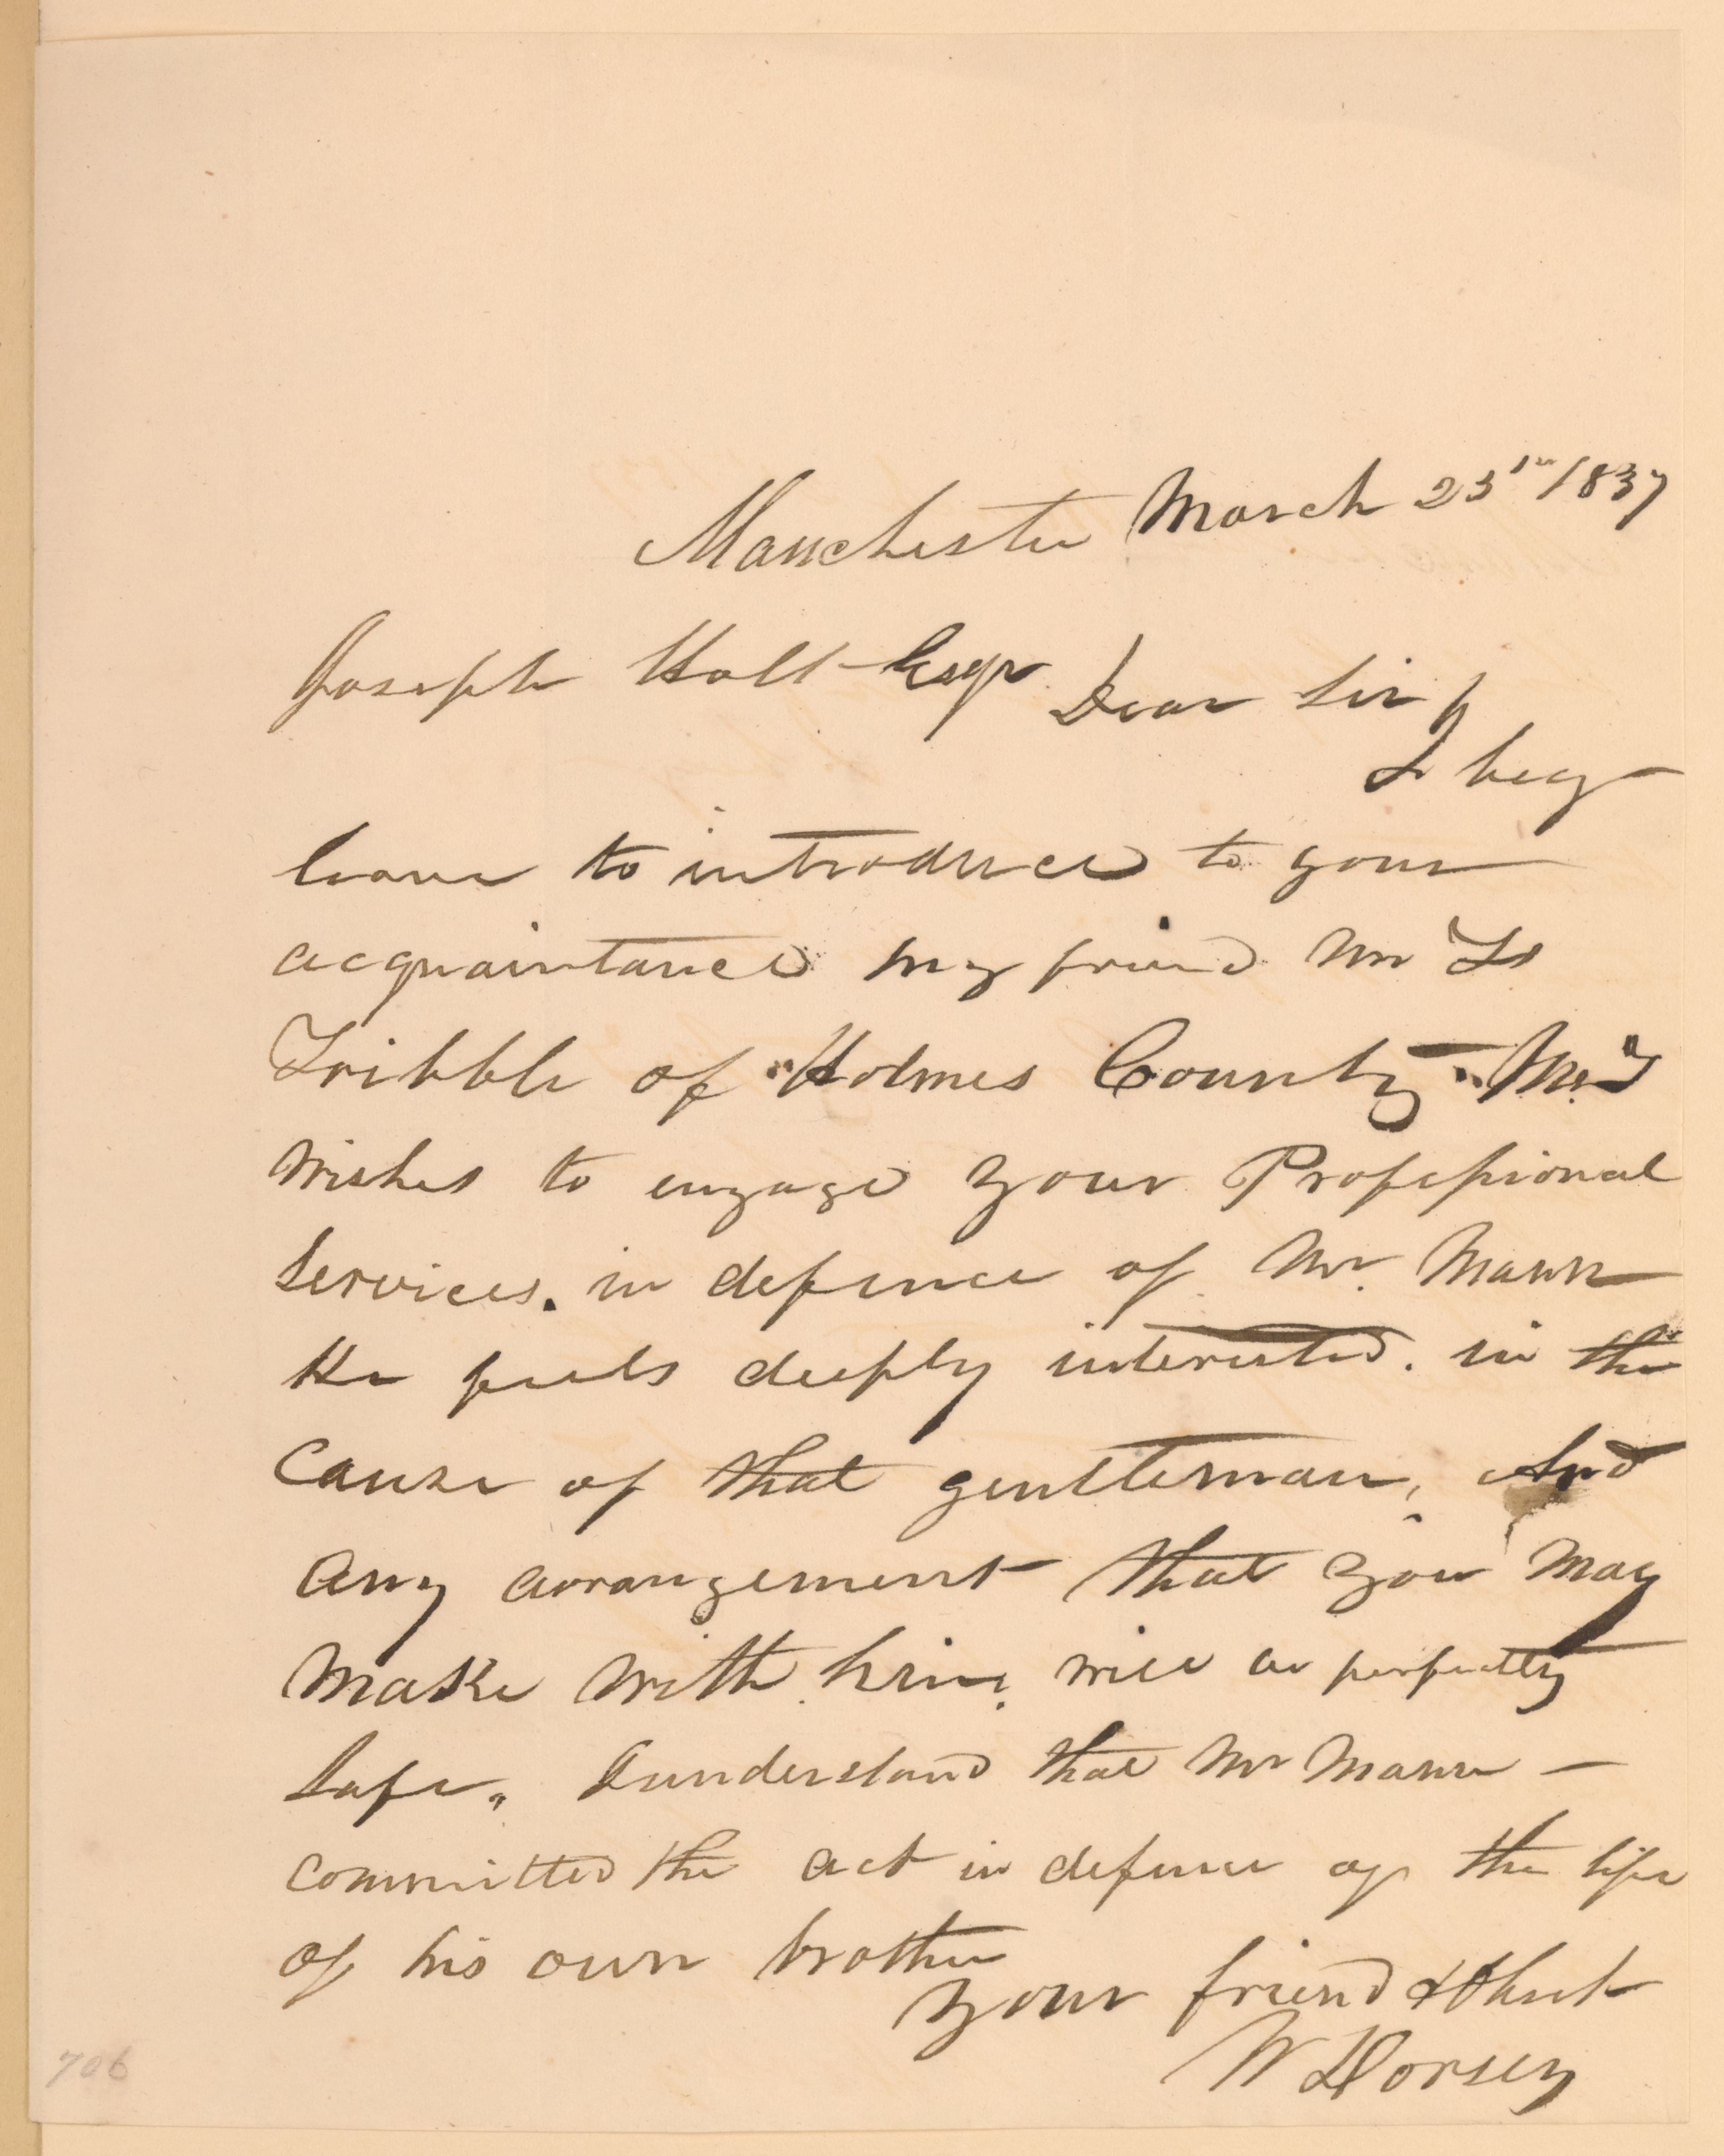 Manchester March 23rd 1837
Joseph Holt Esqr Dear Sir
I beg
leave to introduce to your
acquaintance my friend Mr Ls
Tribble of "Holmes County" Mr T
wishes to engage your Professional
Services. in defence of Mr. Mann
He feels deeply interested. in the
Cause of that gentleman, And
any arrangement that you may
make with him, will be perfectly
Safe, I understand that Mr Mann –
committed the act in defence of the life
of his own brother
your friend & Obset
W Dorsey
706